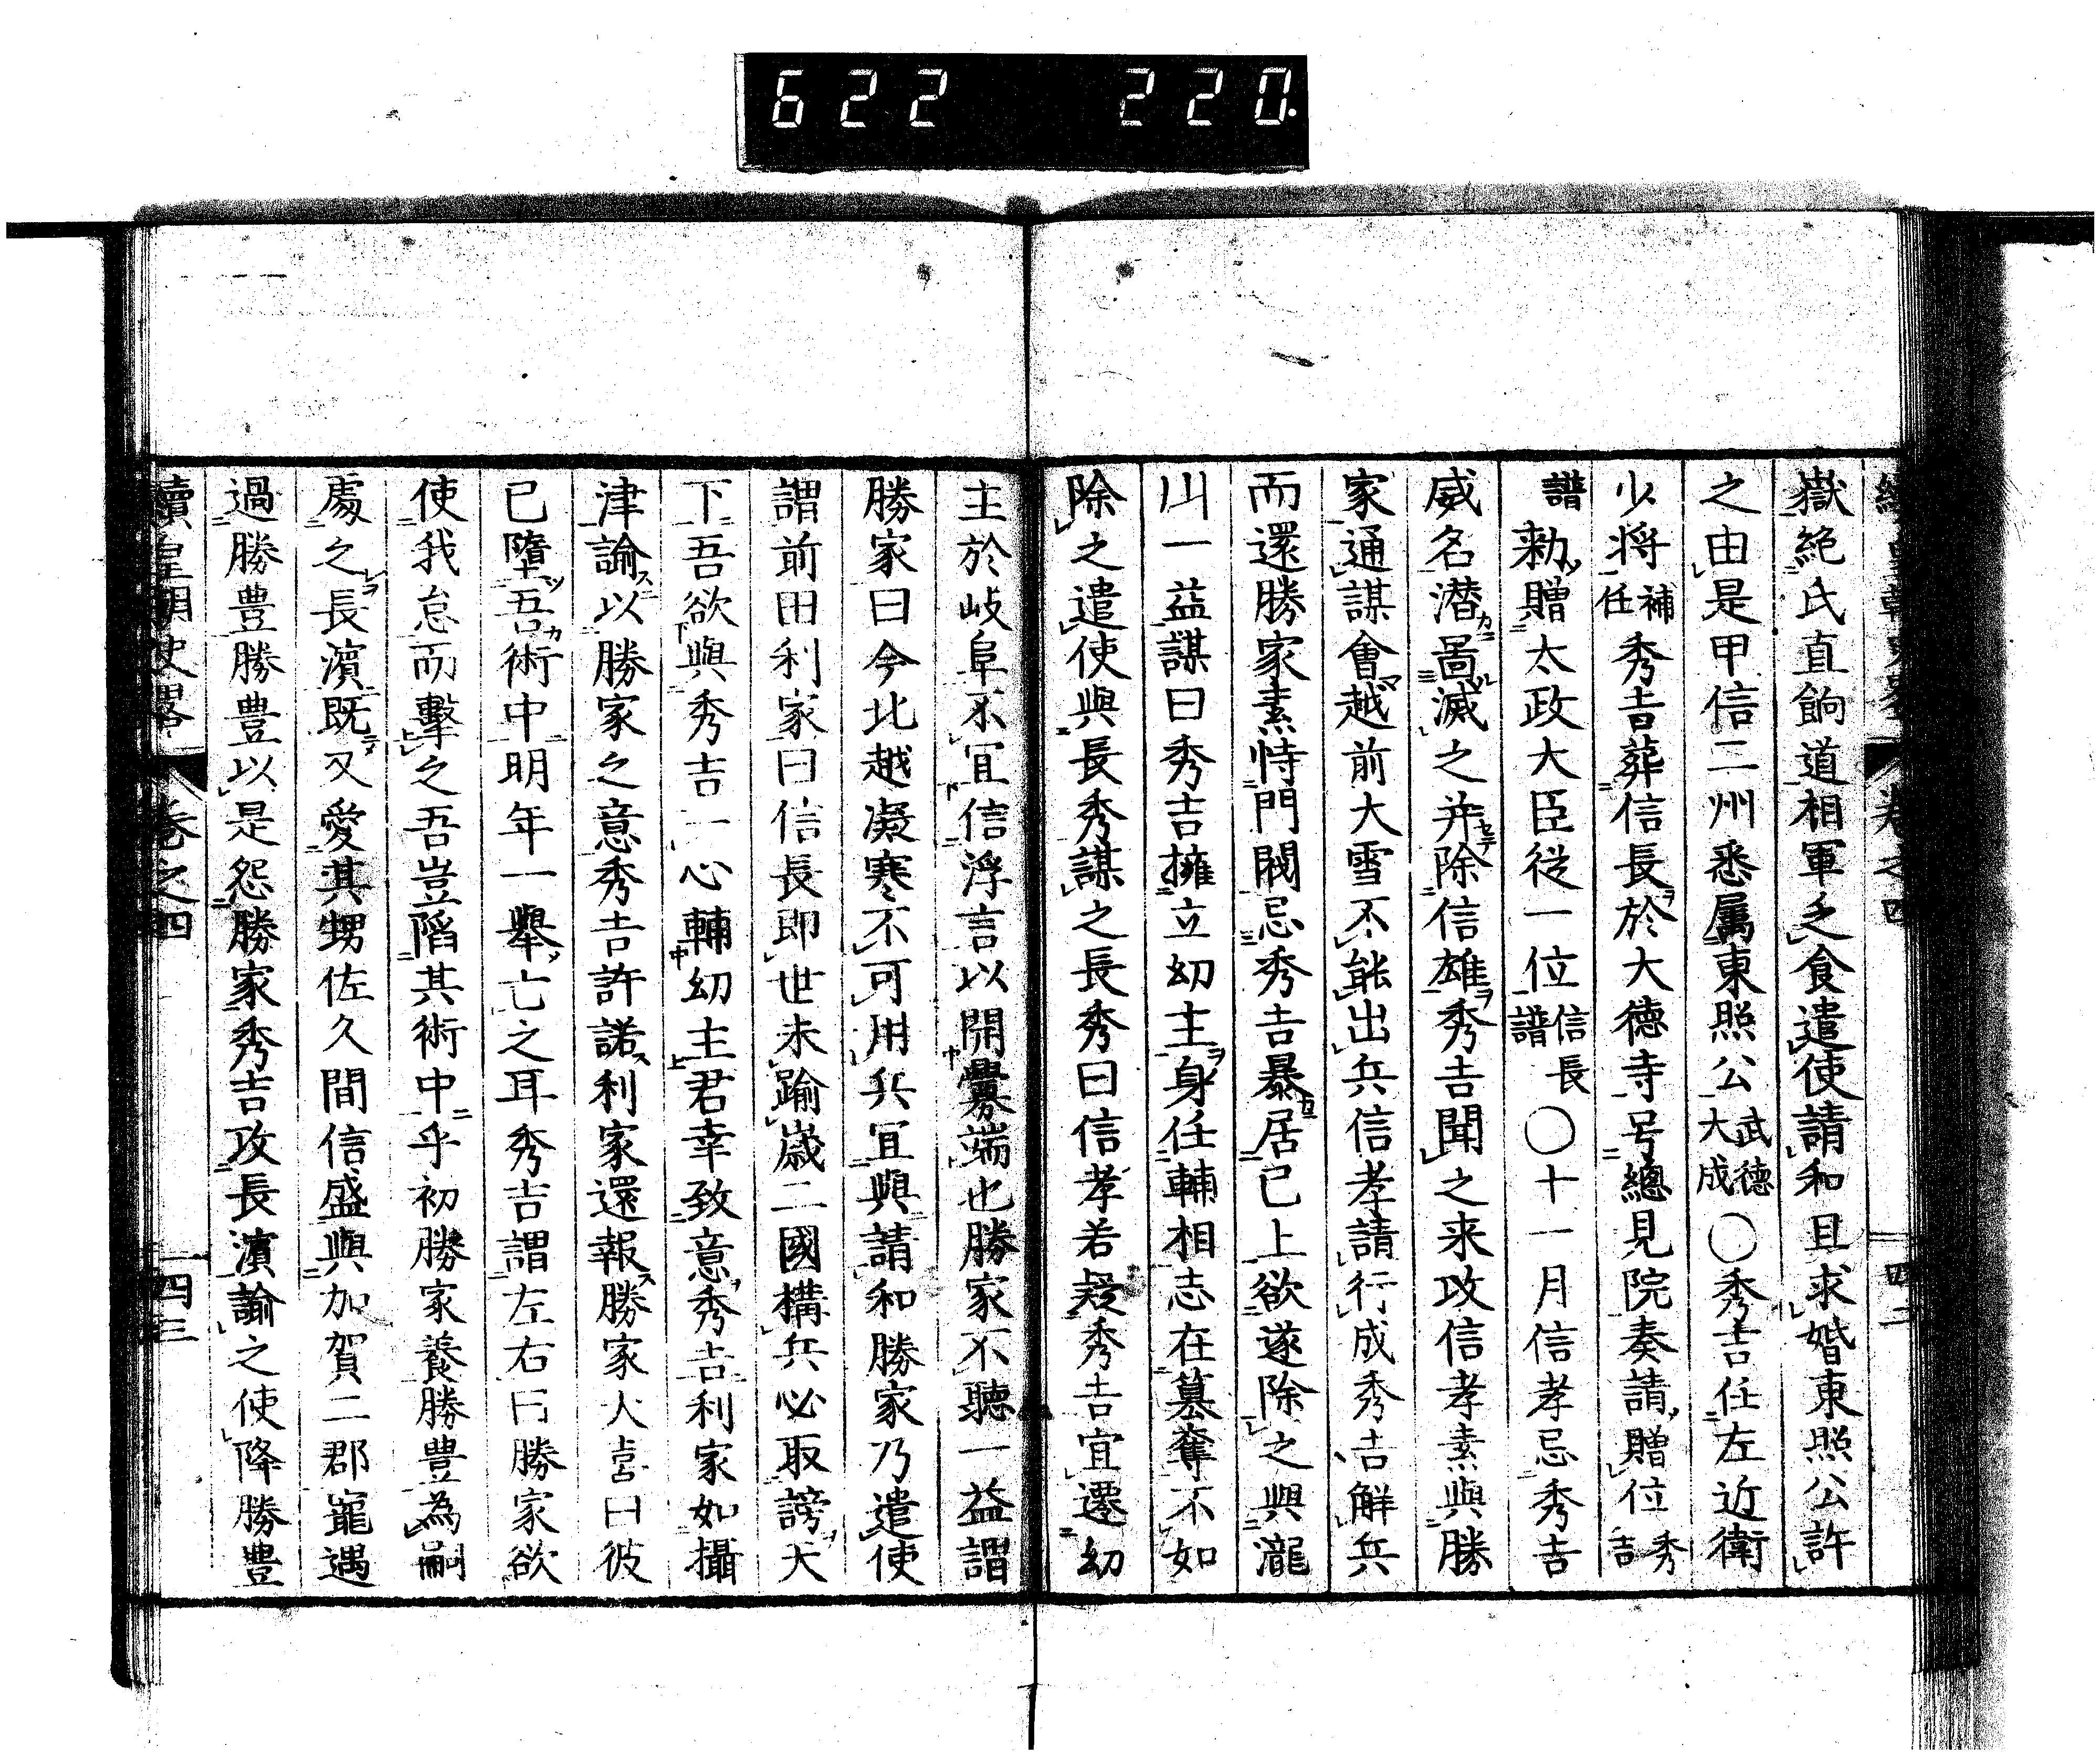 622 220.
續皇朝史畧 卷之四 四二
嶽絶氏直餉道相軍乏食遣使請和且求婚東照公許
之由是甲信二州悉属東照公武德大成〇秀吉任左近衛
少将補任秀吉葬信長於大徳寺号總見院奏請贈位秀吉
譜勅贈太政大臣従一位信長譜〇十一月信孝忌秀吉
威名潜啚滅之并除信雄秀吉聞之来攻信孝素與勝
家通謀會越前大雪不能出兵信孝請行成秀吉解兵
而還勝家素恃門閥忌秀吉暴居已上欲遂除之與瀧
川一益謀曰秀吉擁立幼主身任輔相志在簒奪不如
除之遣使與長秀謀之長秀曰信孝若疑秀吉宜遷幼
主於岐阜不宜信浮言以開釁端也勝家不聽一益謂
勝家曰今北越凝寒不可用兵宜與請和勝家乃遣使
謂前田利家曰信長即世未踰歳二國構兵必取謗天
下吾欲與秀吉一心輔幼主君幸致意秀吉利家如攝
津諭以勝家之意秀吉許諾利家還報勝家大喜曰彼
已墮吾術中明年一舉亡之耳秀吉謂左右曰勝家欲
使我怠而擊之吾豈陷其術中乎初勝家養勝豊為嗣
處之長濵既又愛其甥佐久間信盛與加賀二郡寵遇
過勝豊勝豊以是怨勝家秀吉攻長濵諭之使降勝豊
續皇朝史畧 卷之四 四三